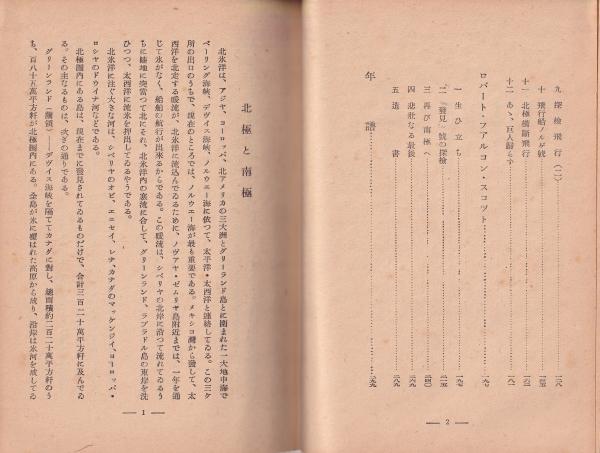 九　探檢飛行（二）
十　飛行船ノルゲ號
十一　北極橫斷飛行
十二　あゝ、巨人歸らず
ロバート・フアルコン・スコツト
一　生ひ立ち
二　『發見』號の探檢
三　再び南極へ
四　悲壯なる最後
五　遺書
年譜
— 2 —
北極と南極
北氷洋は、アジヤ、ヨーロッパ、北アメリカの三大洲とグリーランド島とに圍まれた一大地中海で
ベーリング海峽、デヴイス海峽、ノルウエー海に依つて、太平洋・太西洋と連絡してゐる。この三ケ
所の出口のうちで、現在のところでは、ノルウエー海が最も重要である。メキシコ灣から發して、太
西洋を北走する暖流が、北氷洋に流込んでゐるために、ノヴアヤ・ゼムリヤ島附近までは、一年を通
じて氷がなく、船舶の航行が出來るからである。この暖流は、シベリヤの北岸に沿つて流れてゐるう
ちに陸地に突當つて北にそれ、北氷洋內の寒流に合して、グリーンランド、ラブラドル島の東岸を洗
ひつつ、太西洋に流氷を押出してゐるやうである。
北氷洋に注ぐ大きな河は、シベリヤのオビ、エニセイ、レナ、カナダのマッケンジイ、ヨーロッパ・
ロシヤのドウイナ河などである。
北極圈內にある島は、現在までに發見されてゐるものだけで、合計三百二十萬平方粁に及んでゐ
る。その主なるものは、次ぎの通りである。
グリーンランド（蘭領）——デヴイス海峽を隔ててカナダに對し、總面積約二百二十萬平方粁のう
ち、百八十五萬平方粁が北極圈內にある。全島が氷に覆はれた高原から成り、沿岸は氷河を成してゐ
— 1 —